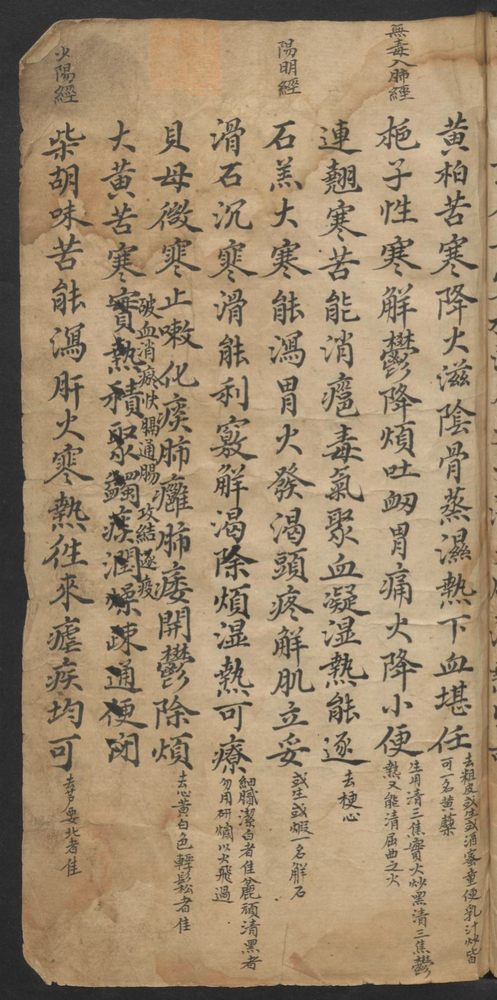 黄柏苦寒降火滋陰骨蒸濕熱下血堪任
去粗皮或生或酒蜜童便乳汁炒皆
可一名黄蘗
無毒入肺經
梔子性寒解鬱降煩吐衂胃痛火降小便
生用清三焦實火炒黑清三焦鬱
熱又能清屈曲之火
連翹寒苦能消癰毒氣聚血凝湿熱能逐
去梗心
陽明經
石羔大寒能瀉胃火發渴頭疼解肌立妥
或生或煅一名解石
滑石沉寒滑能利竅解渴除煩湿熱可療
細膩潔白者佳麄頑清黑者
勿用研爛以火飛過
貝母微寒止嗽化痰肺癰肺痿開鬱除煩
去心黄白色輕鬆者佳
破血消瘀快膈通腸攻結逐
大黄苦寒實熱積聚蠲痰潤燥疎通便閉
少陽經
柴胡味苦能瀉肝火寒熱徃來瘧疾均可
去芦要北者佳